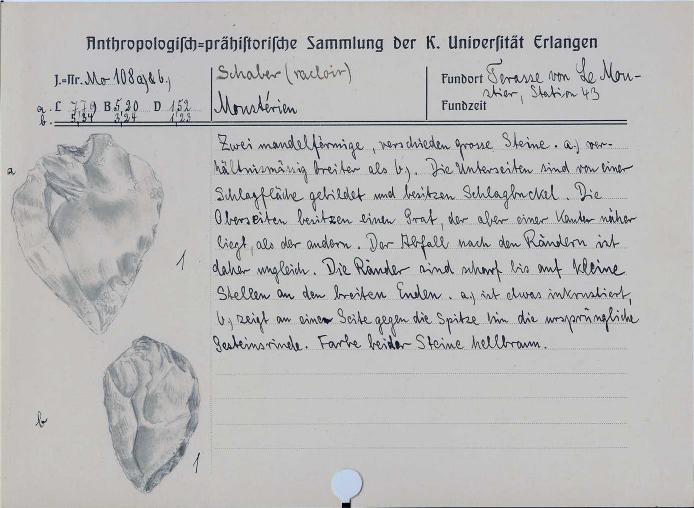 Anthropologisch=prähistorische Sammlung der K. Universität Erlangen
J.=Nr. Mo 108 a,& b,
Schaber (racloir)
Fundort Terasse von Le Mou-
stier, Station 43
a. L 7,79 B 5,20 D 1,52
b. 5,34 3,24 1,23
Moustérien
Fundzeit
a
Zwei mandelförmige, verschieden grosse Steine. a,) ver-
hältnismässig breiter als b,). Die Unterseiten sind von einer
Schlagfläche gebildet und besitzen Schlagbuckel. Die
Oberseiten besitzen einen Grat, der aber einer Kante näher
liegt, als der andern. Der Abfall nach den Rändern ist
daher ungleich. Die Ränder sind scharf bis auf kleine
Stellen an den breiten Enden. a,) ist etwas inkrustiert,
b,) zeigt an einer Seite gegen die Spitze hin die ursprüngliche
Gesteinsrinde. Farbe beider Steine hellbraun.
1
b
1